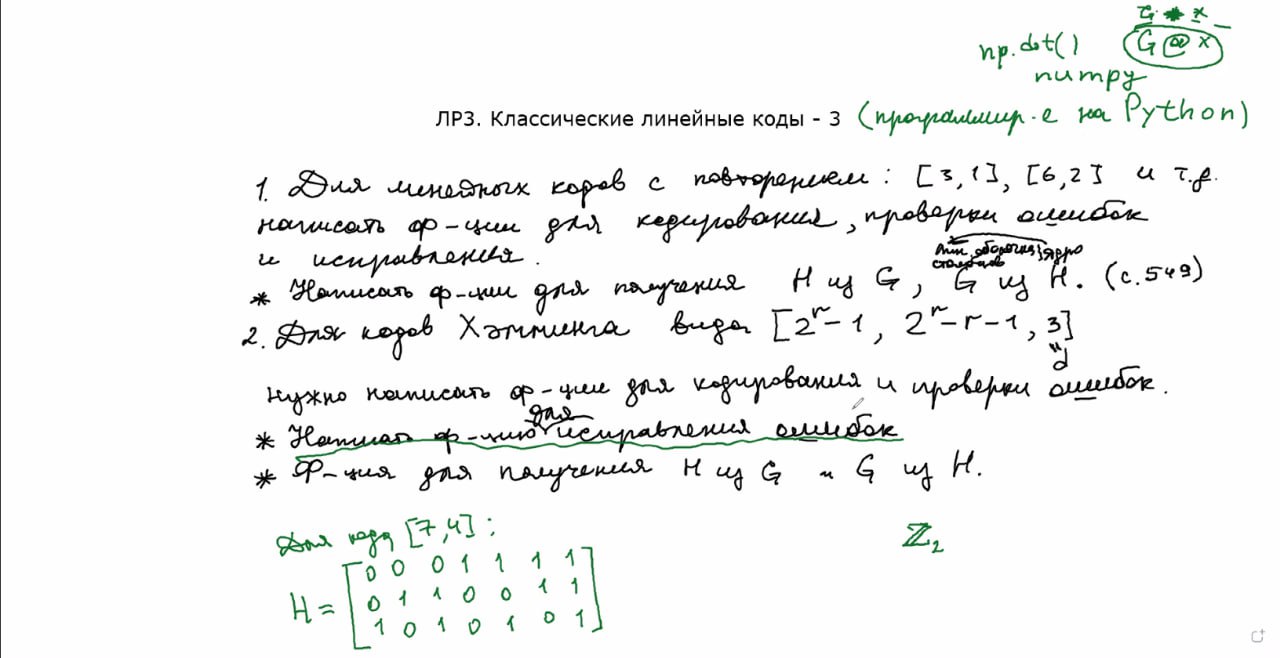 G * x
np.dot() G @ x
numpy
ЛР3. Классические линейные коды - 3 (программир-е на Python)
1. Для линейных кодов с повторением: [3,1], [6,2] и т.д.
написать ф-ции для кодирования, проверки ошибок
и исправления.
лин. оболочка; ядро
столбцов
* Написать ф-ции для получения H из G, G из H. (с.549)
2. Для кодов Хэмминга вида [2^r-1, 2^r-r-1, 3]
"
d
Нужно написать ф-ции для кодирования и проверки ошибок.
для
* Написать ф-цию исправления ошибок
* Ф-ция для получения H из G и G из H.
Для кода [7,4]:
ℤ₂
0 0 0 1 1 1 1
H = 0 1 1 0 0 1 1
1 0 1 0 1 0 1